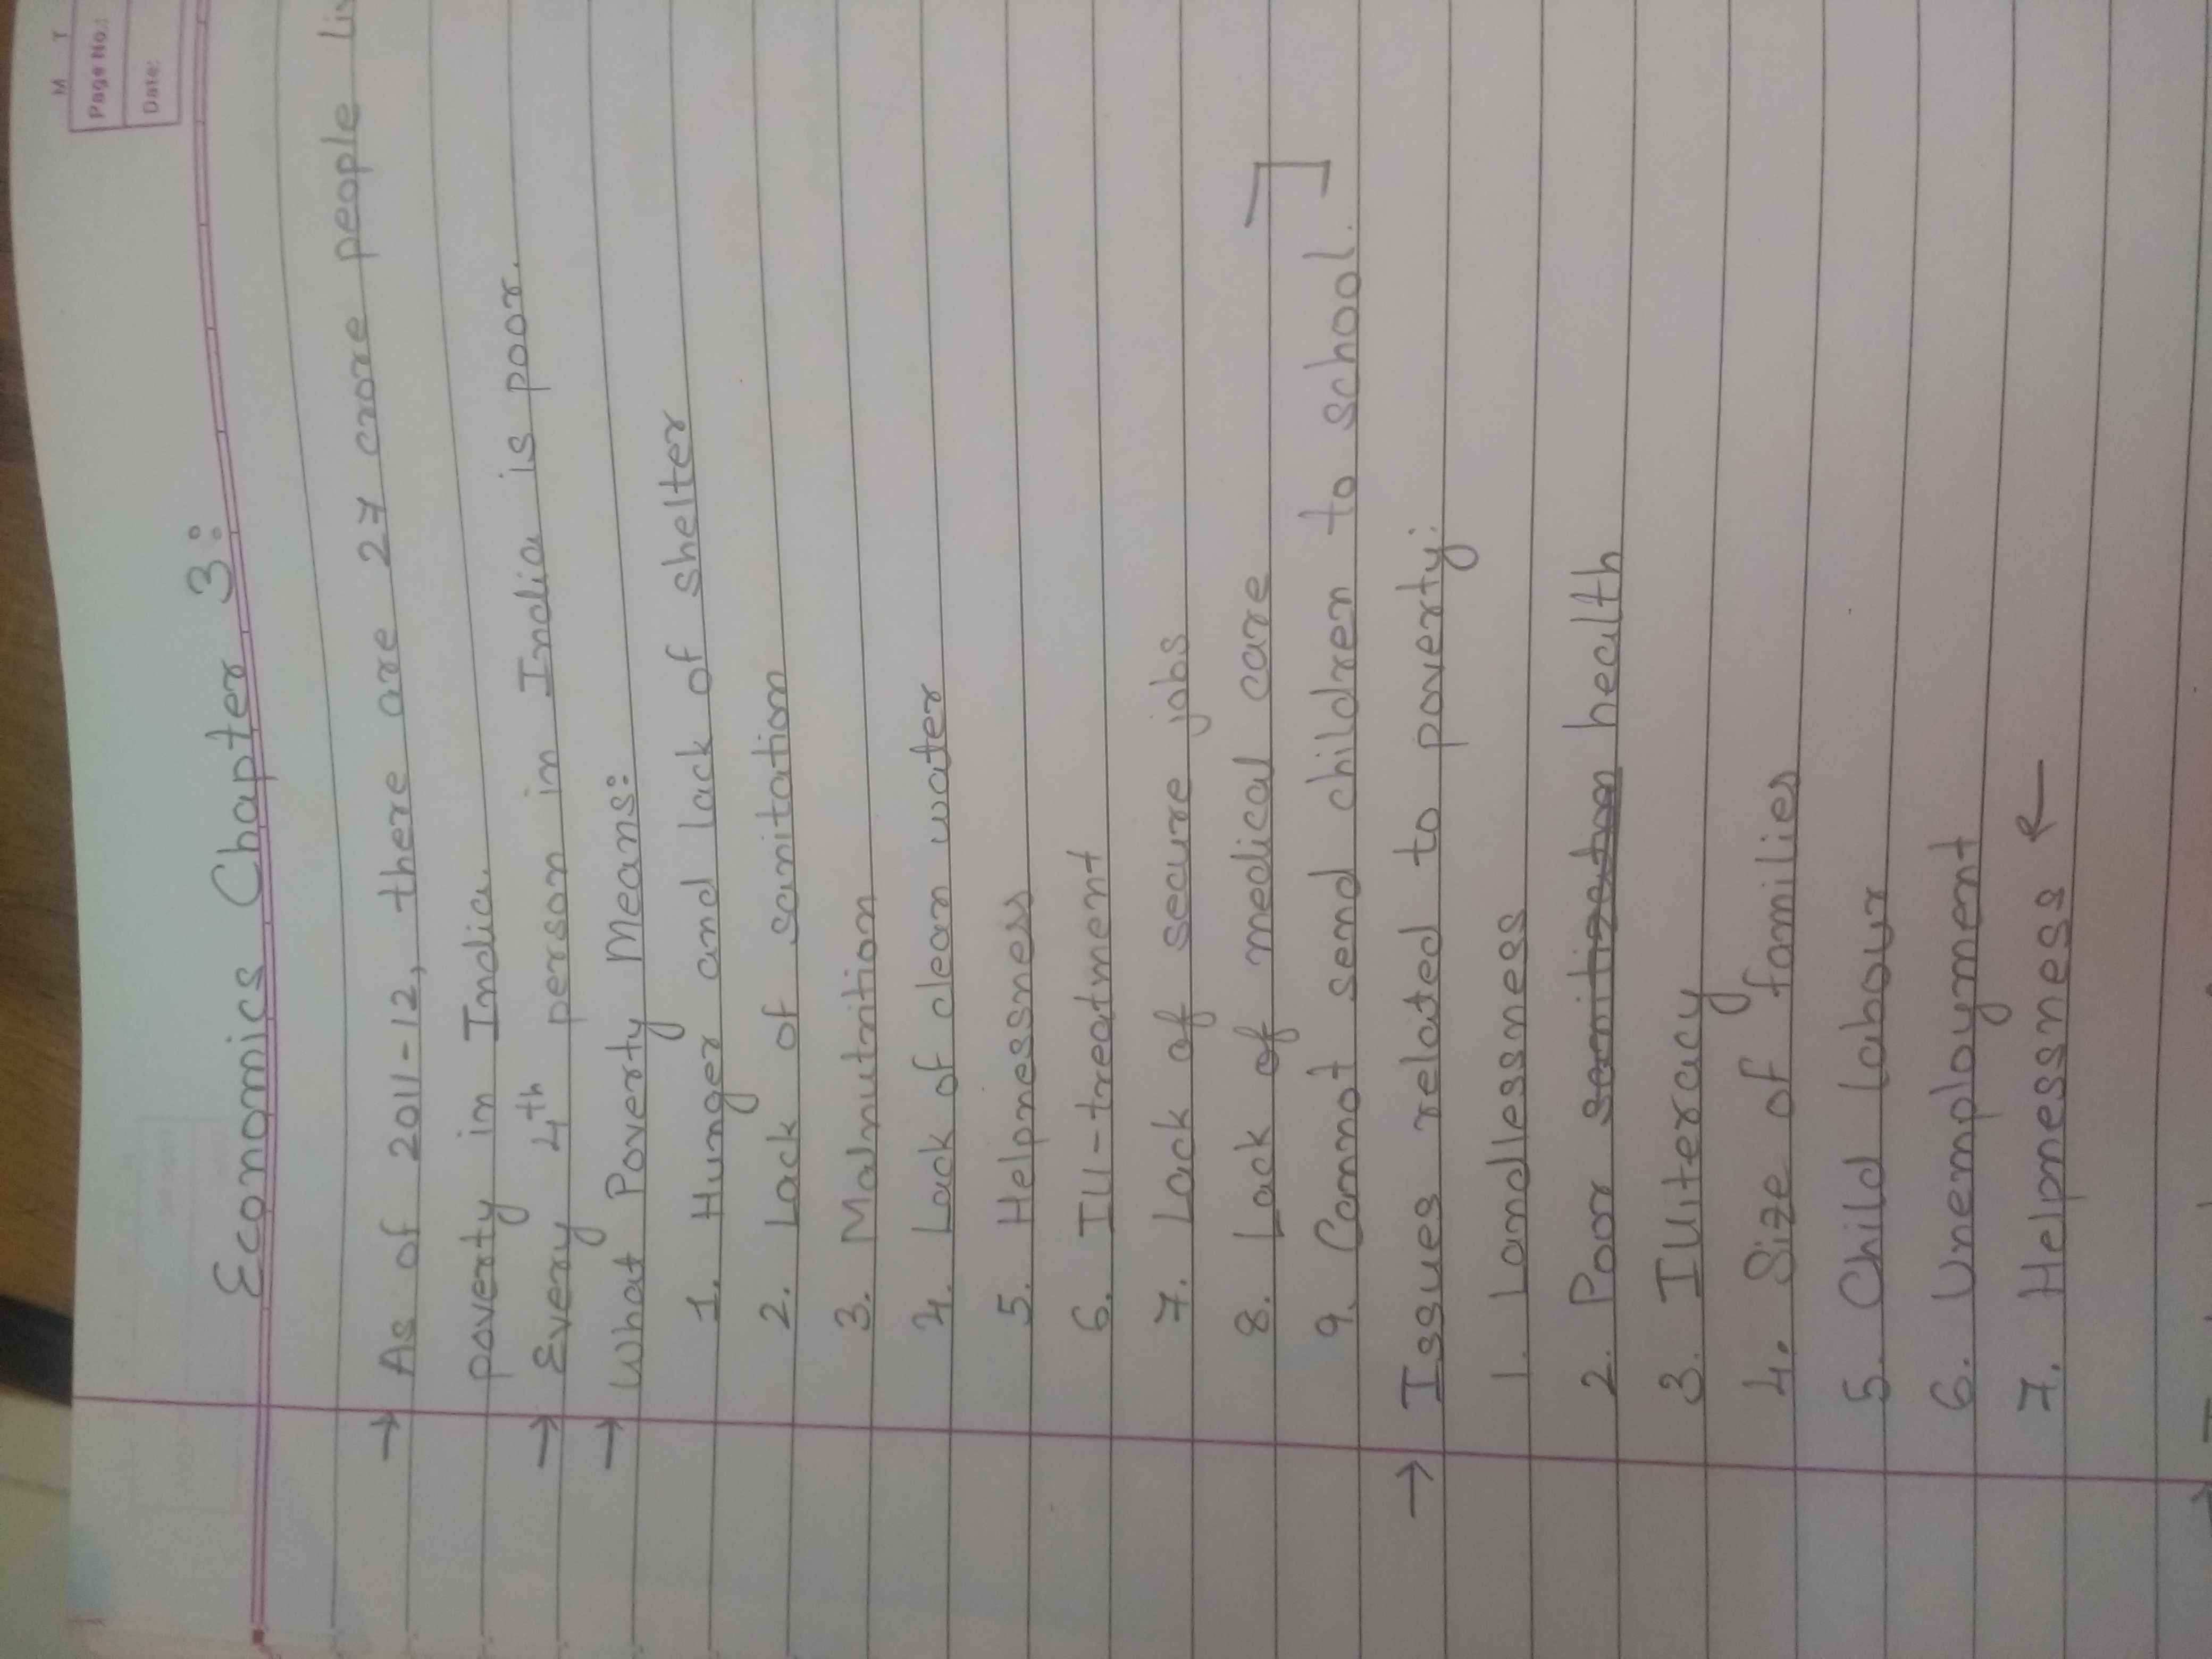 M T
Page No.:
Date:
Economics Chapter 3:
→ As of 2011-12, there are 27 crore people
poverty in India.
→ Every 4th person in India is poor.
→ What Poverty Means:
1. Hunger and lack of shelter
2. Lack of sanitation
3. Malnutrition
4. Lack of clean water
5. Helpnessness
6. Ill-treatment
7. Lack of secure jobs
8. Lack of medical care
9. Cannot send children to school.]
→ Issues related to poverty:
1. Landlessness
2. Poor health
3. Illiteracy
4. Size of families
5. Child labour
6. Unemployment
7. Helpnessness ←